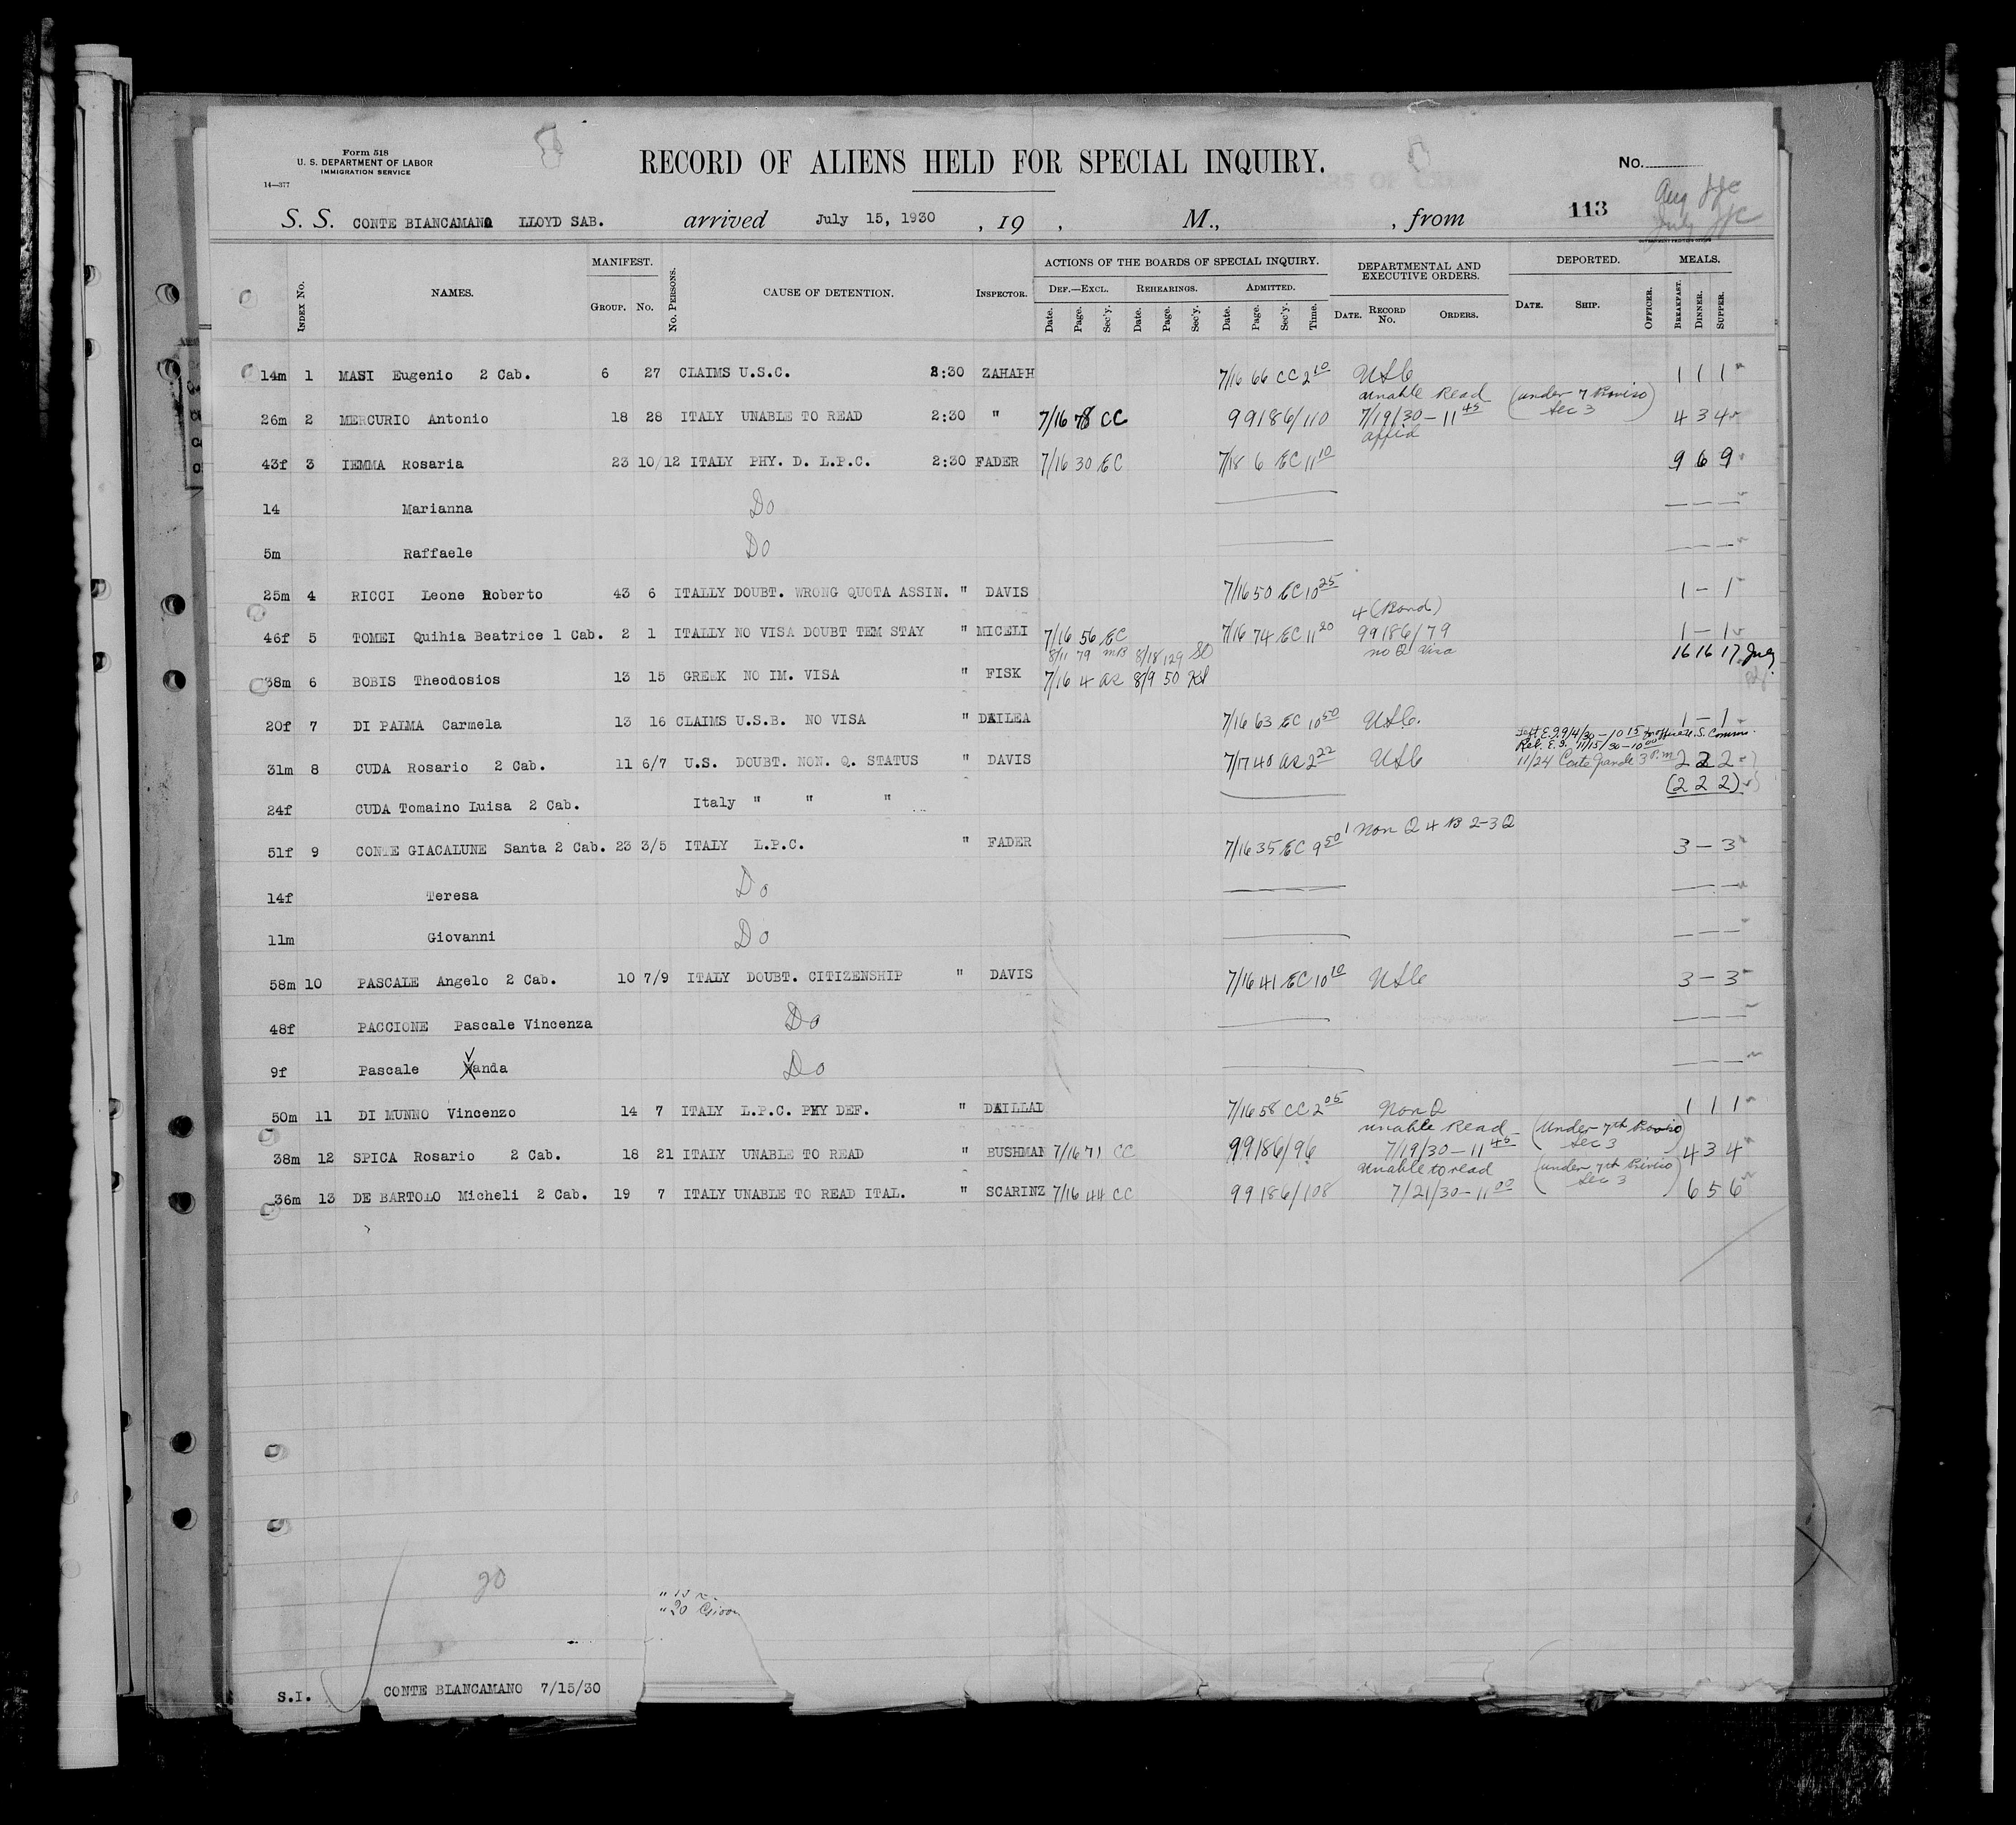 Form 518
U. S. DEPARTMENT OF LABOR
IMMIGRATION SERVICE
14—377
RECORD OF ALIENS HELD FOR SPECIAL INQUIRY.
No.
S. S. CONTE BIANCAMANO LLOYD SAB. arrived July 15, 1930, 19 , M., , from 113
Aug
July
INDEX No. NAMES. MANIFEST. GROUP. No. No. PERSONS. CAUSE OF DETENTION. INSPECTOR. ACTIONS OF THE BOARDS OF SPECIAL INQUIRY. DEPARTMENTAL AND EXECUTIVE ORDERS. DEPORTED. MEALS.
DEF.—EXCL. REHEARINGS. ADMITTED.
Date. Page. Sec'y. Date. Page. Sec'y. Date. Page. Sec'y. Time. DATE. RECORD No. ORDERS. DATE. SHIP. OFFICER. BREAKFAST. DINNER. SUPPER.
14m 1 MASI Eugenio 2 Cab. 6 27 CLAIMS U.S.C. 2:30 ZAHAPH 7/16 66 CC 2 10 USC 1 1 1
unable Read (under 7 Proviso Sec 3)
26m 2 MERCURIO Antonio 18 28 ITALY UNABLE TO READ 2:30 " 7/16 78 CC 99186/110 7/19/30 – 11 45 4 3 4
affid
43f 3 IEMMA Rosaria 23 10/12 ITALY PHY. D. L.P.C. 2:30 FADER 7/16 30 EC 7/18 6 EC 11 10 9 6 9
14 Marianna Do — — —
5m Raffaele Do — — —
25m 4 RICCI Leone Roberto 43 6 ITALLY DOUBT. WRONG QUOTA ASSIN. " DAVIS 7/16 50 EC 10 25 1 – 1
4 (Bond)
46f 5 TOMEI Quihia Beatrice 1 Cab. 2 1 ITALLY NO VISA DOUBT TEM STAY " MICELI 7/16 56 EC 7/16 74 EC 11 20 99186/79 1 – 1
8/11 79 MB 8/18 129 no Q Visa 16 16 17 July
38m 6 BOBIS Theodosios 13 15 GREEK NO IM. VISA " FISK 7/16 4 as 8/9 50
20f 7 DI PAIMA Carmela 13 16 CLAIMS U.S.B. NO VISA " DAILEA 7/16 63 EC 10 50 USC. 1 – 1
Left E.I. 9/4/30 – 10 15 U.S. Comm.
Ret. E.I. 11/15/30 – 10 00
11/24 Conte Grande 3 P.m
31m 8 CUDA Rosario 2 Cab. 11 6/7 U.S. DOUBT. NON. Q. STATUS " DAVIS 7/17 40 as 2 22 USC 2 2 2
(2 2 2)
24f CUDA Tomaino Luisa 2 Cab. Italy " " "
1 Non Q 4 B 2–3 Q
51f 9 CONTE GIACALUNE Santa 2 Cab. 23 3/5 ITALY L.P.C. " FADER 7/16 35 EC 9 50 3 – 3
14f Teresa Do — — —
11m Giovanni Do — — —
58m 10 PASCALE Angelo 2 Cab. 10 7/9 ITALY DOUBT. CITIZENSHIP " DAVIS 7/16 41 EC 10 10 USC 3 – 3
48f PACCIONE Pascale Vincenza Do — — —
9f Pascale Vanda Do — — —
50m 11 DI MUNNO Vincenzo 14 7 ITALY L.P.C. PHY DEF. " DAILLAD 7/16 58 CC 2 05 Non Q 1 1 1
unable Read (Under 7th Proviso Sec 3)
38m 12 SPICA Rosario 2 Cab. 18 21 ITALY UNABLE TO READ " BUSHMAN 7/16 71 CC 99186/96 7/19/30 – 11 45 4 3 4
Unable to read (under 7th Proviso Sec 3)
36m 13 DE BARTOLO Micheli 2 Cab. 19 7 ITALY UNABLE TO READ ITAL. " SCARINZ 7/16 44 CC 99186/108 7/21/30 – 11 00 6 5 6
20
" 20
S.I. CONTE BIANCAMANO 7/15/30